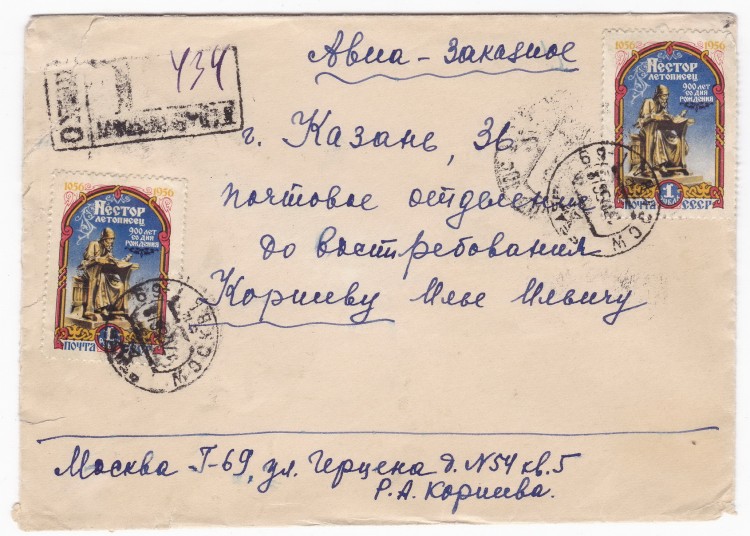 Авиа-Заказное
434
г. Казань, 36
почтовое отделение
до востребования
Корниеву Илье Ильичу
Москва Г-69, ул. Герцена д. N54 кв. 5
Р.А. Корниева.
1056 1956
Нестор
летописец
900 лет
со дня
рождения
1
почта СССР
1056 1956
Нестор
летописец
900 лет
со дня
рождения
1
почта
МОСКВА